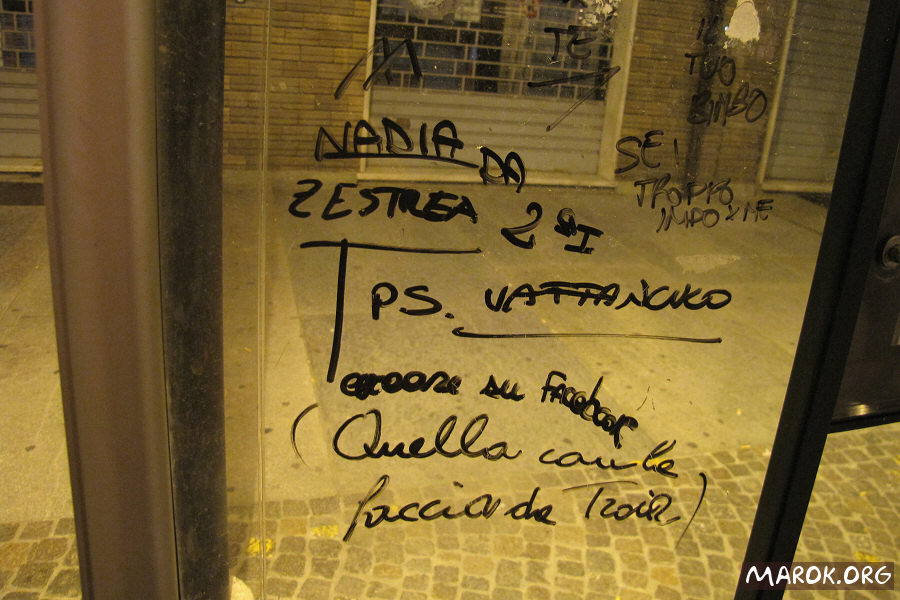 TE
IL
TUO
BIMBO
M
NADIA DA
2 ESTREA 2ªI
SEI
TROPPO
PS. VATTANCULO
su Facebook
(Quella con la
faccia da Troia)
MAROK.ORG